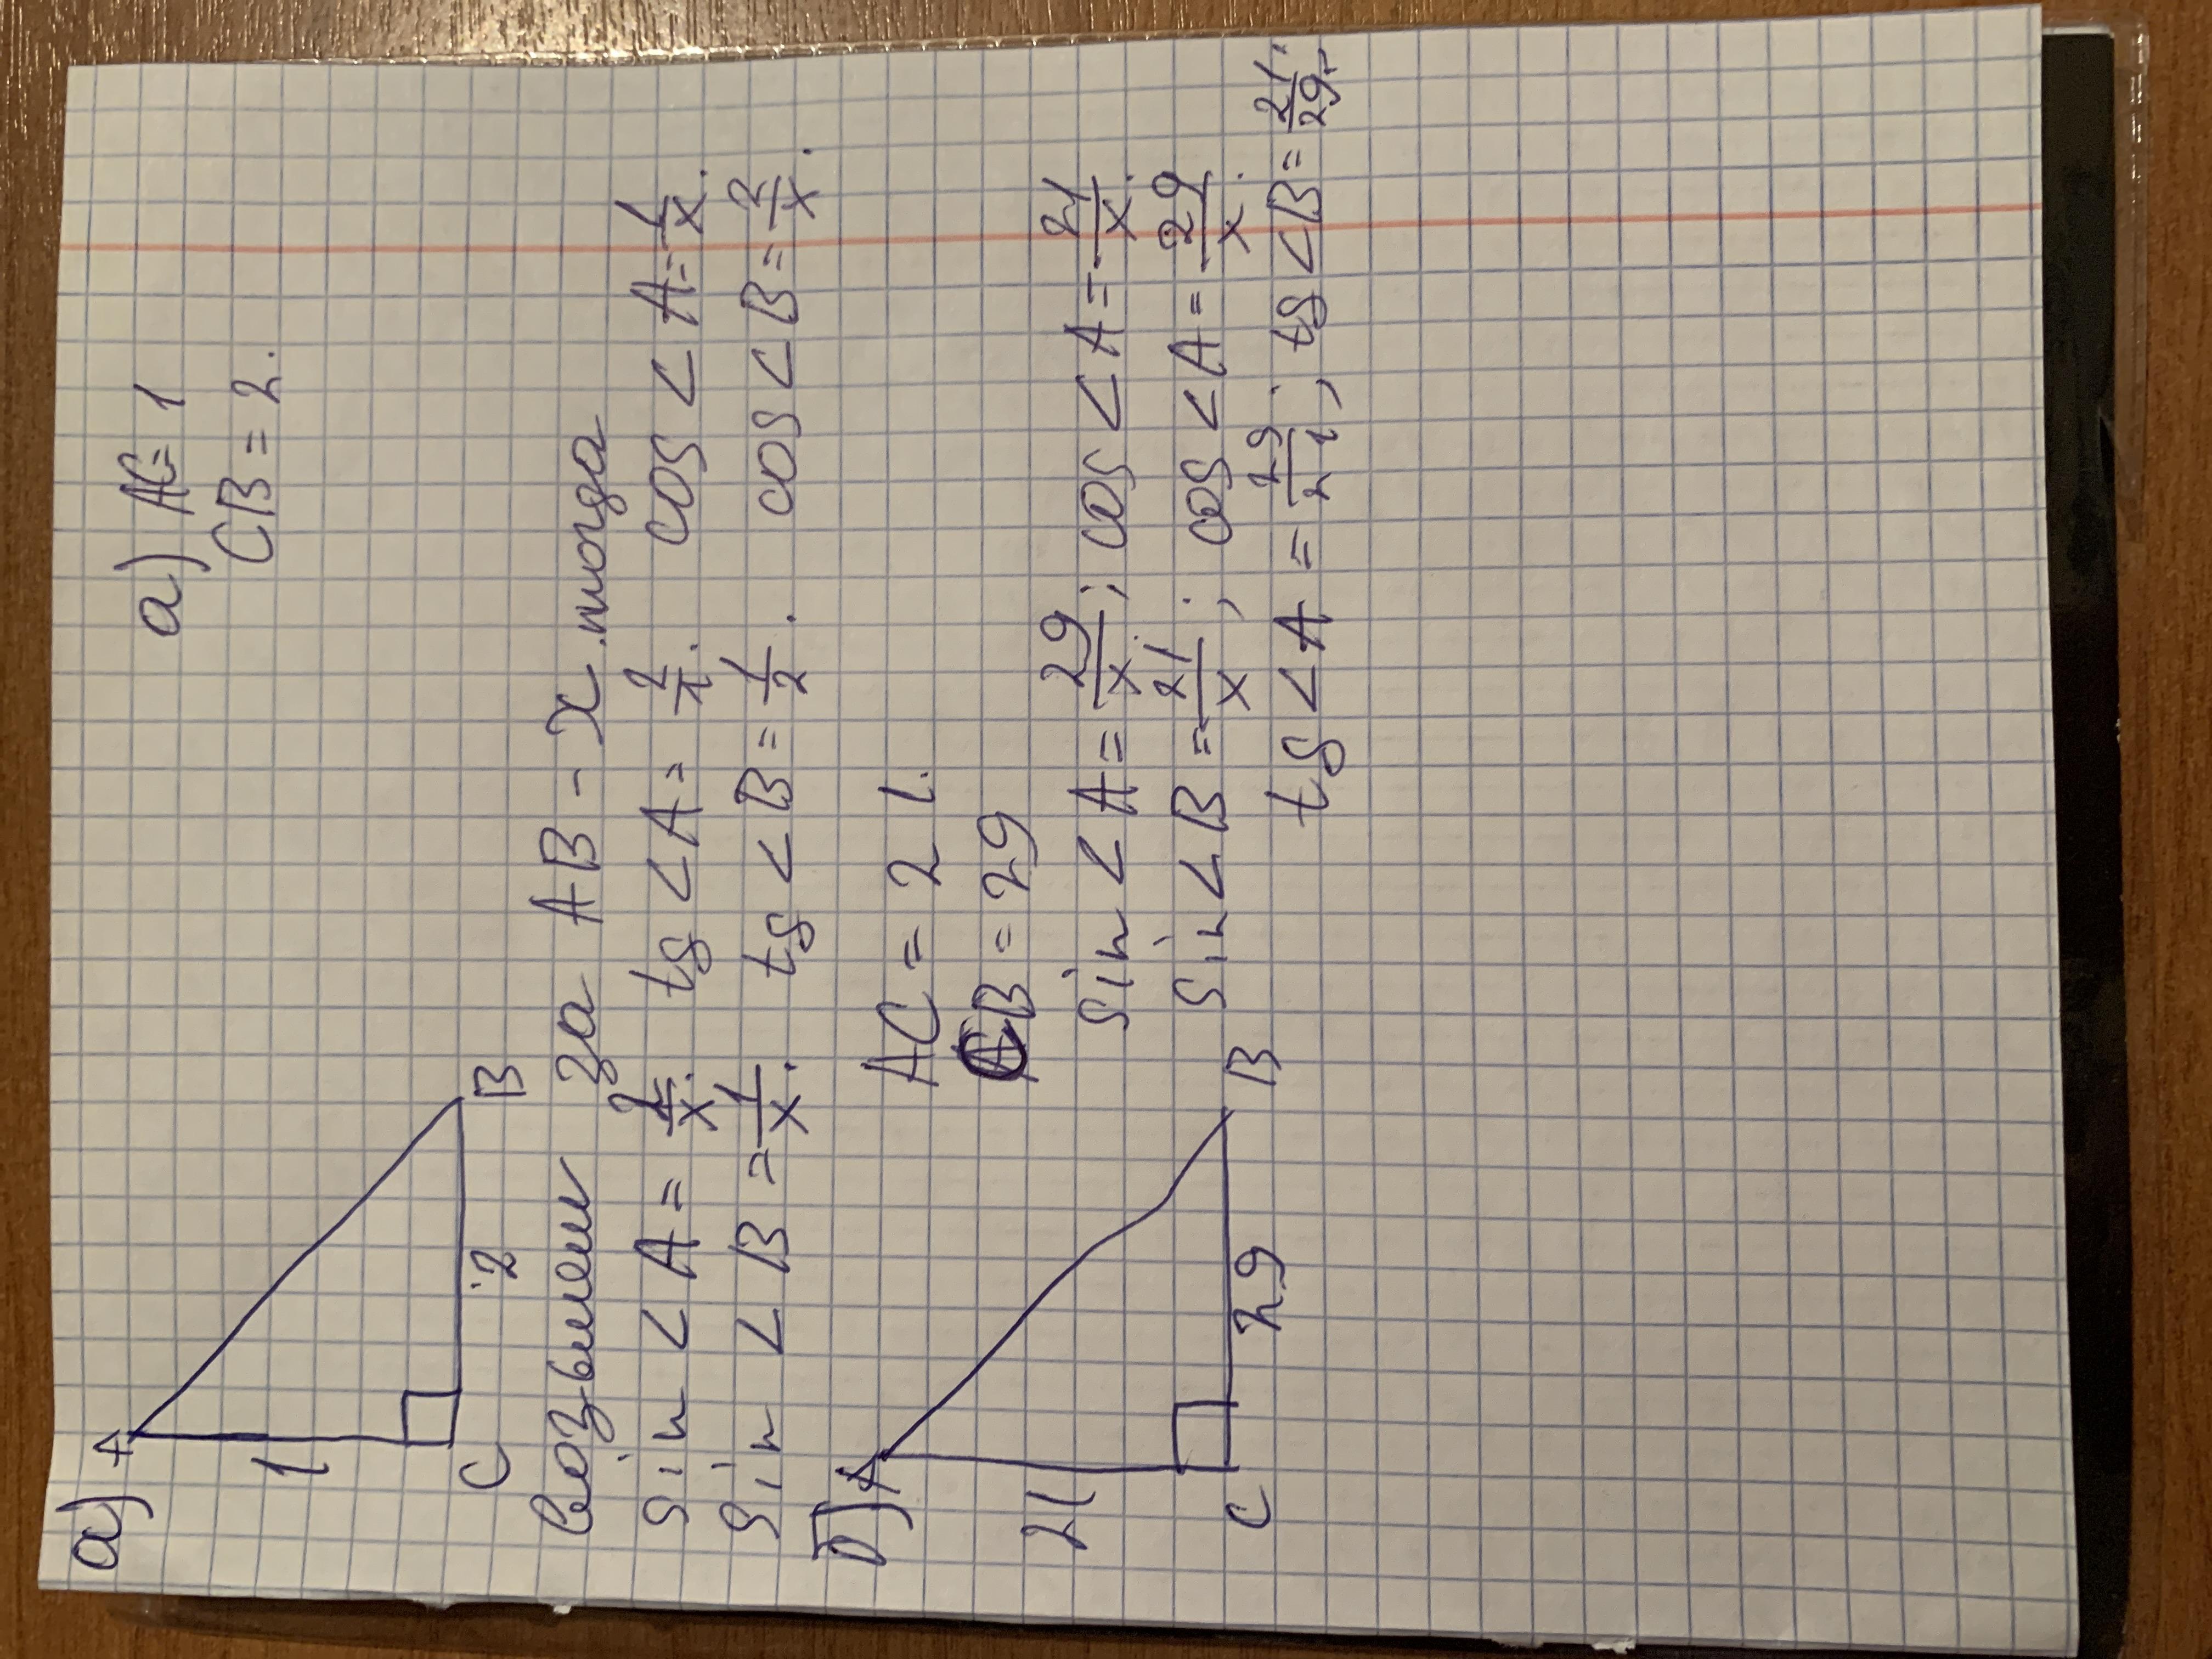 а) А
1
С
2
В
а) AC = 1
CB = 2.
возьмем за AB - x. тогда
sin < A = 2/x. tg < A = 2/1. cos < A = 1/x.
sin < B = 1/x. tg < B = 1/2. cos < B = 2/x.
Б) А
21
С
29
В
AC = 21.
CB = 29
sin < A = 29/x; cos < A = 21/x.
sin < B = 21/x; cos < A = 29/x.
tg < A = 29/21; tg < B = 21/29.